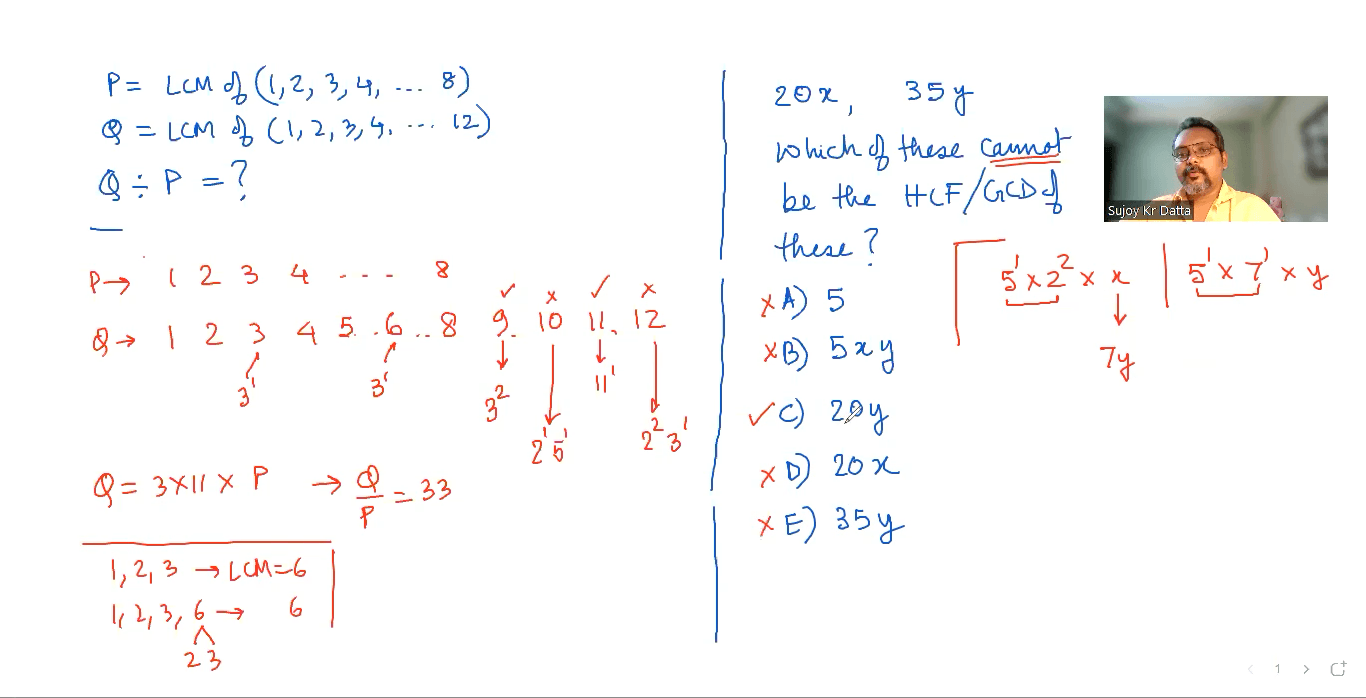 P = LCM of (1, 2, 3, 4, ... 8)
Q = LCM of (1, 2, 3, 4, ... 12)
Q ÷ P = ?
P → 1 2 3 4 ... 8
✓ x ✓ x
Q → 1 2 3 4 5..6..8 9 10 11 12
3¹ 3¹ 3² 11¹
2¹ 5¹ 2² 3¹
Q = 3 x 11 x P → Q/P = 33
1, 2, 3 → LCM = 6
1, 2, 3, 6 → 6
2 3
20x, 35y
which of these cannot
be the HCF/GCD of
these?
x A) 5
x B) 5xy
✓ C) 20y
x D) 20x
x E) 35y
5¹ x 2² x x | 5¹ x 7¹ x y
7y
Sujoy Kr Datta
1